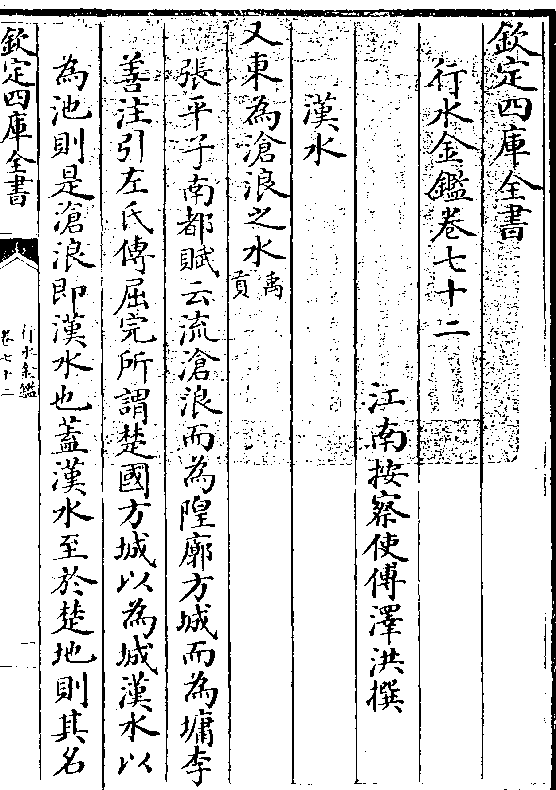 欽定四庫全書
行水金鑑卷七十二
江南按察使傅澤洪撰
漢水
又東為滄浪之水禹貢
張平子南都賦云流滄浪而為隍廓方城而為墉李
善注引左氏傳屈完所謂楚國方城以為城漢水以
為池則是滄浪即漢水也蓋漢水至於楚地則其名
欽定四庫全書
行水金鑑
卷七十二
一